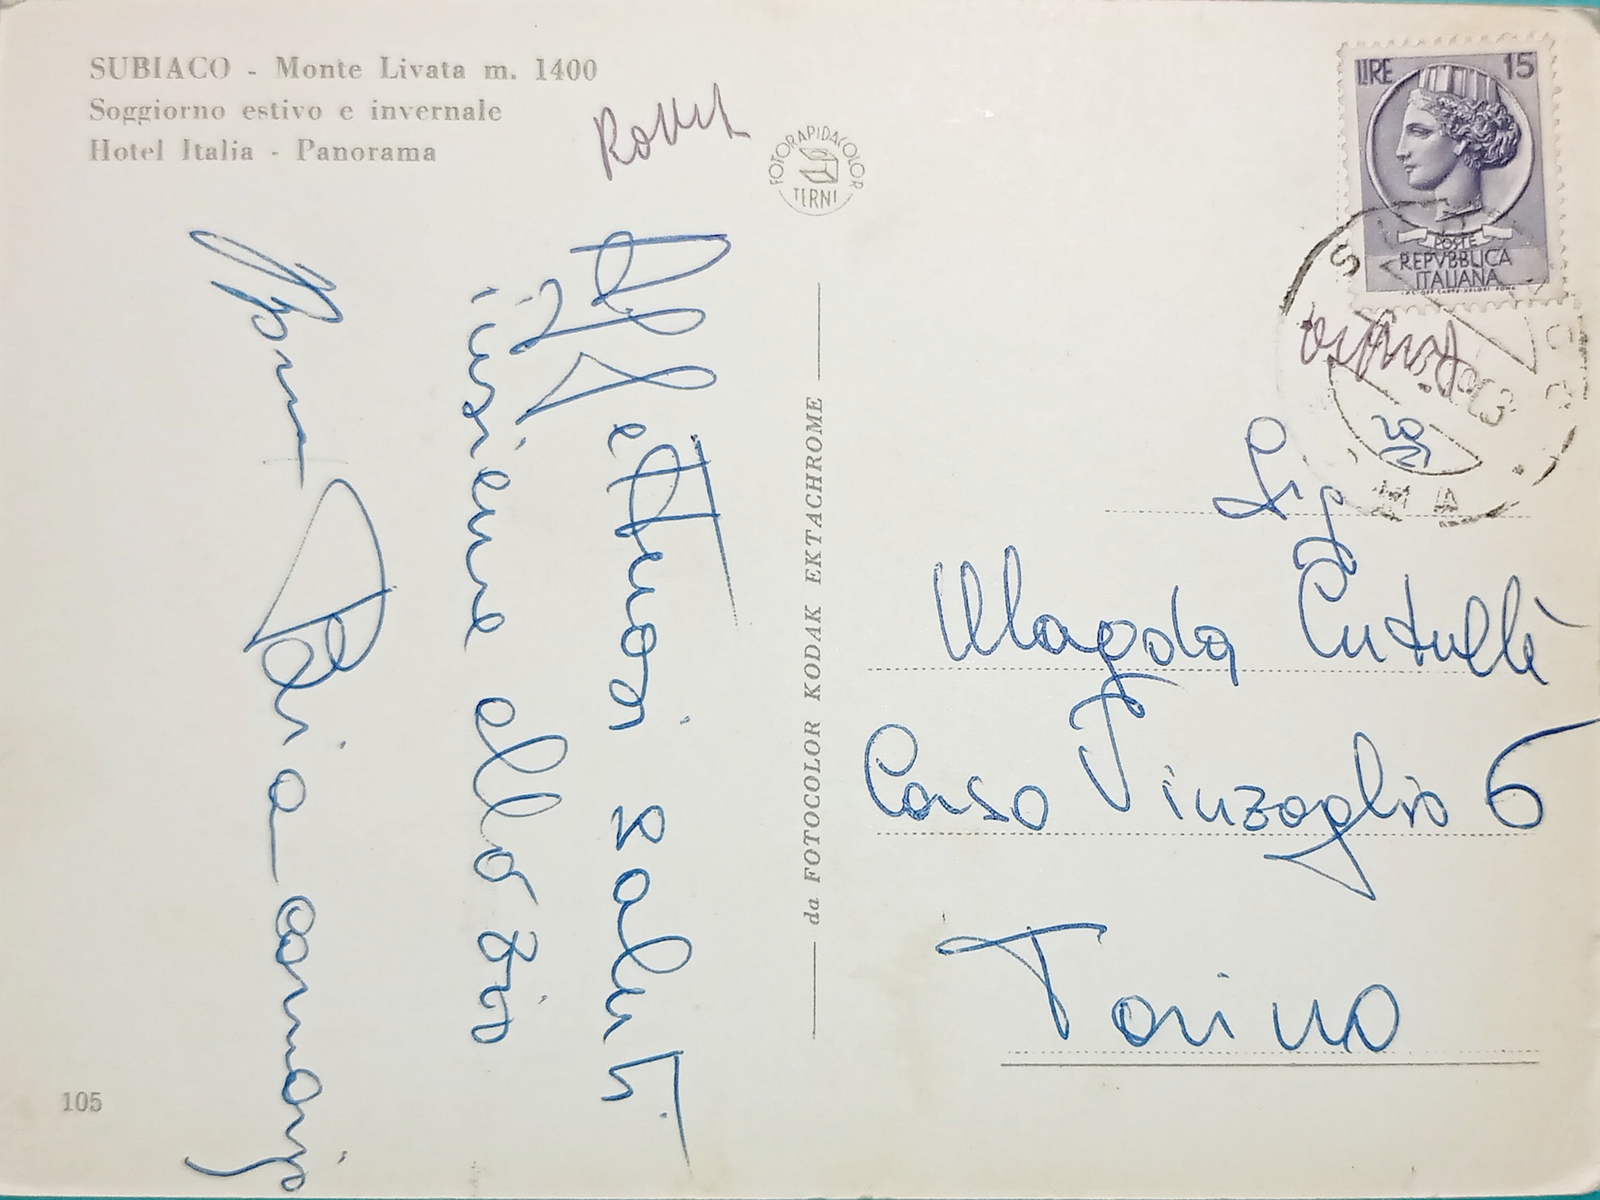 SUBIACO - Monte Livata m. 1400
Soggiorno estivo e invernale
Hotel Italia - Panorama
FOTORAPIDACOLOR
TERNI
Affettuosi saluti
insieme allo zio
da FOTOCOLOR KODAK EKTACHROME
105
LIRE 15
POSTE
REPVBBLICA
ITALIANA
Sig
Magda
Corso Vinzaglio 6
Torino